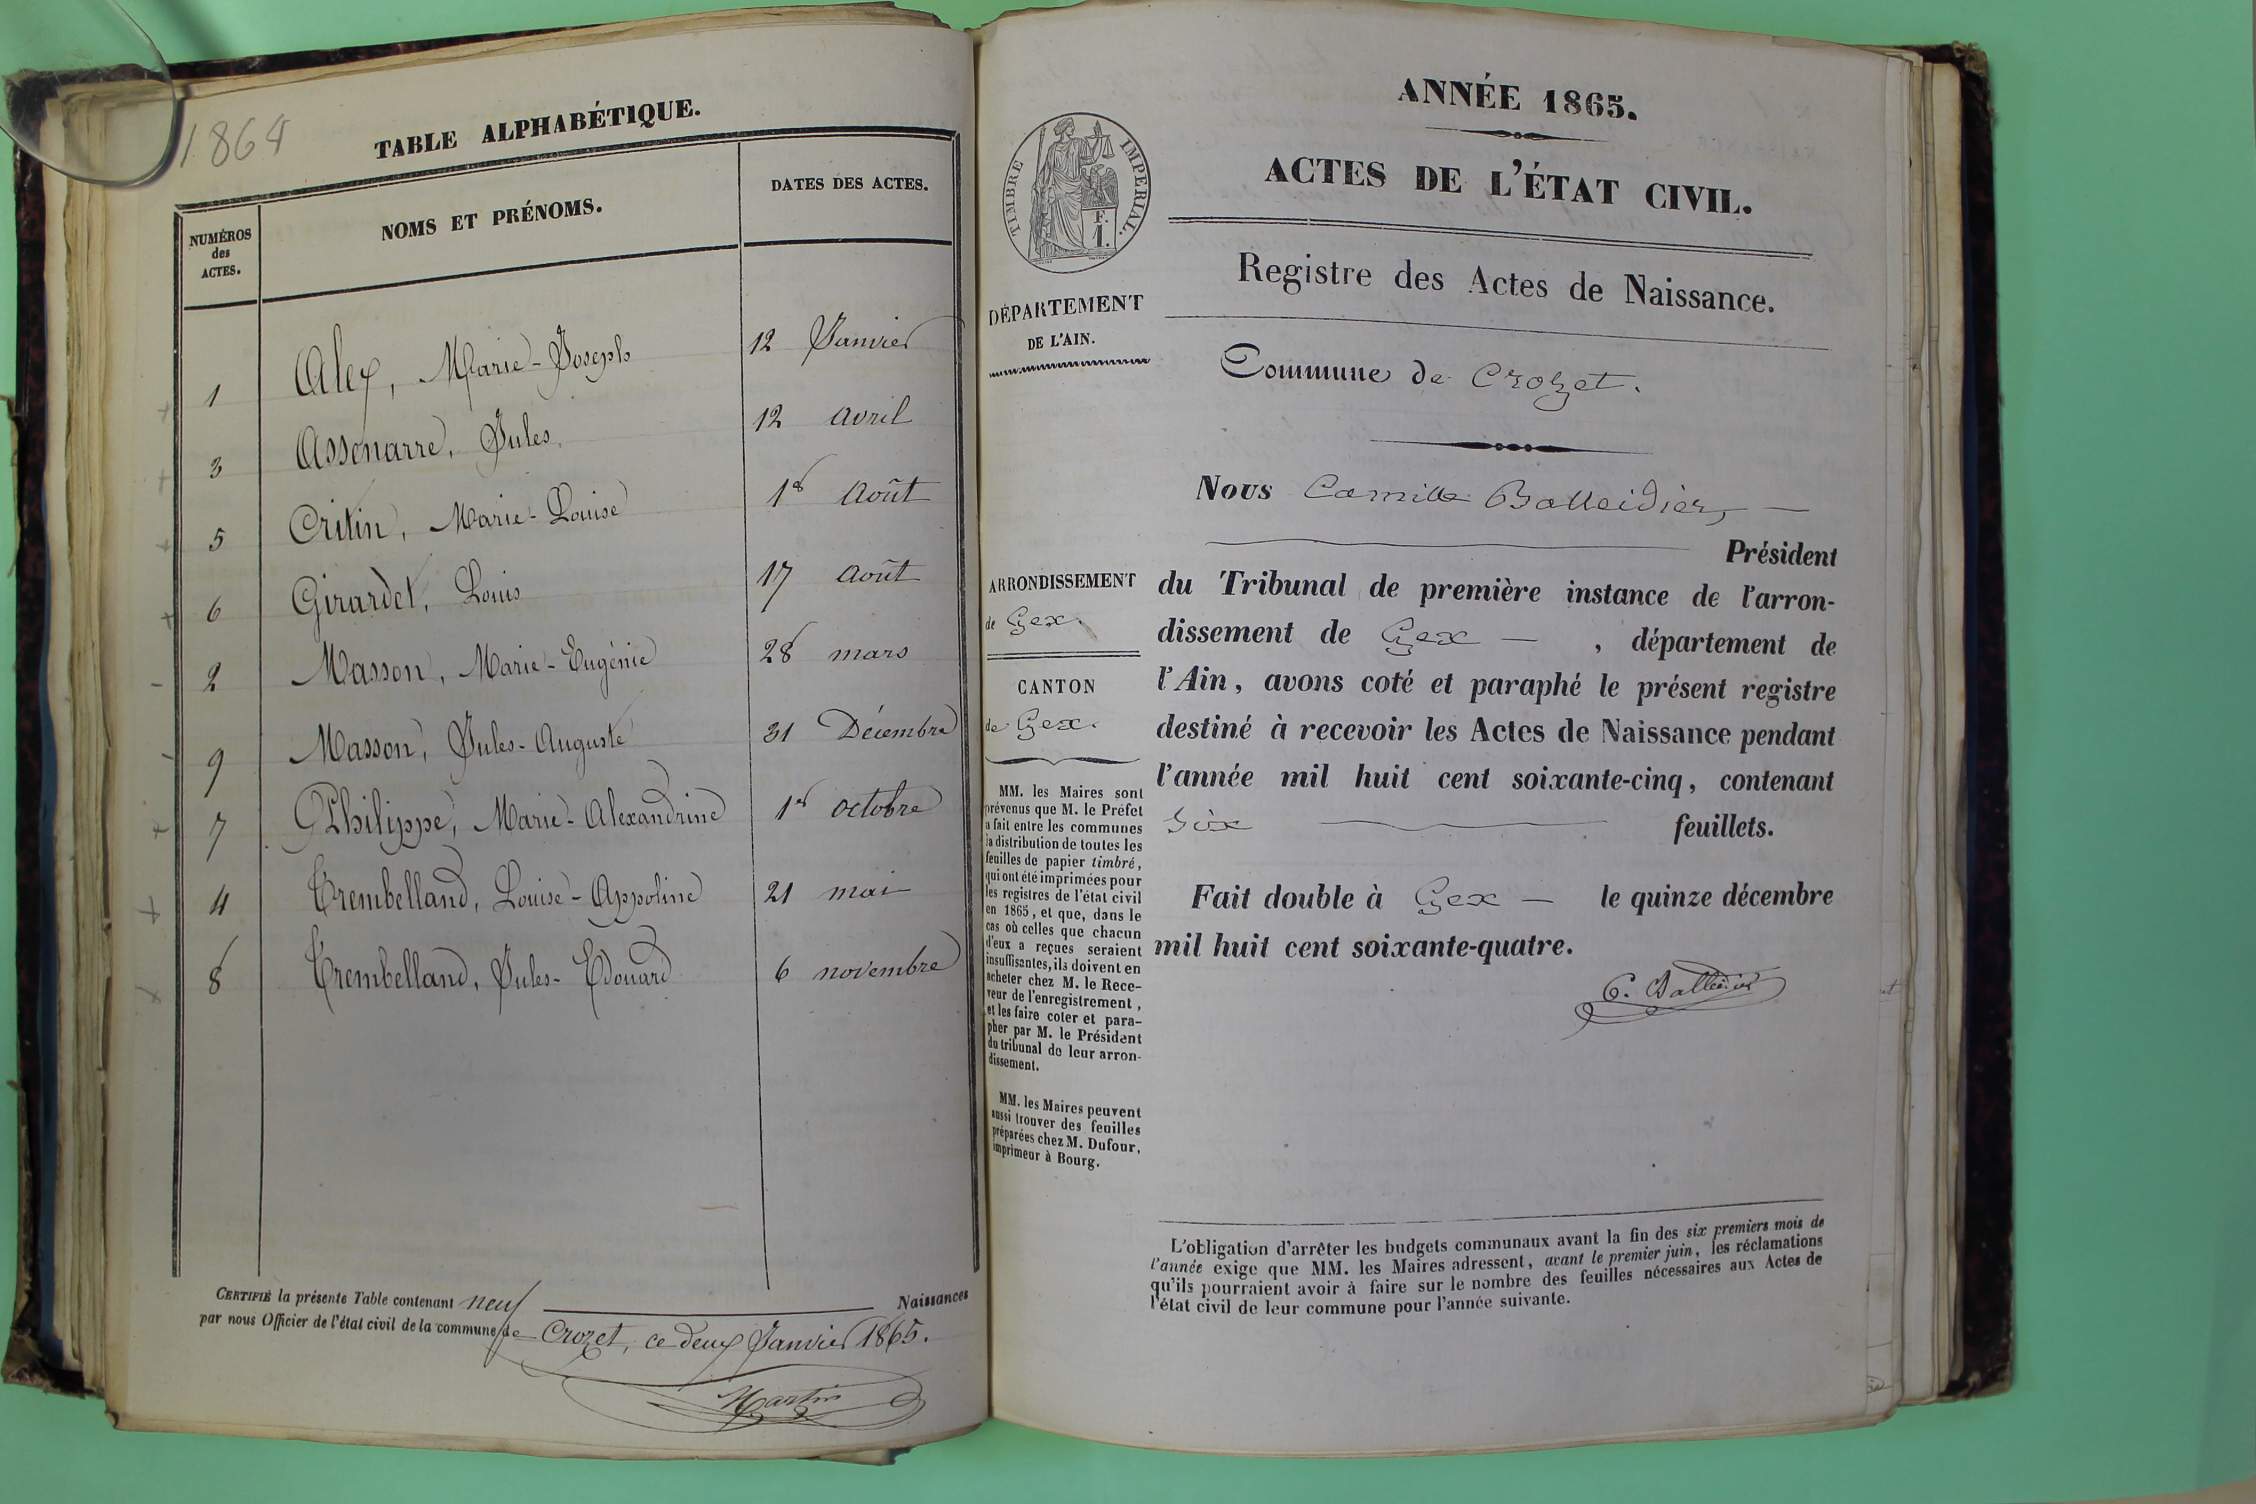 1864
TABLE ALPHABÉTIQUE.
NUMÉROS
des
ACTES.
NOMS ET PRÉNOMS.
DATES DES ACTES.
1 Alex, Marie-Joseph 12 Janvier
3 Assenarre, Jules 12 avril
5 Critin, Marie-Louise 1er Août
6 Girardet, Louis 17 août
2 Masson, Marie-Eugénie 28 mars
9 Masson, Jules-Auguste 31 Décembre
7 Philippe, Marie-Alexandrine 1er octobre
4 Trembelland, Louise-Appoline 21 mai
8 Trembelland, Jules-Edouard 6 novembre
CERTIFIÉ la présente Table contenant neuf Naissances
par nous Officier de l'état civil de la commune de Crozet, ce deux Janvier 1865.
Martin
TIMBRE IMPERIAL.
F.
1.
DÉPARTEMENT
DE L'AIN.
ARRONDISSEMENT
de Gex.
CANTON
de Gex.
MM. les Maires sont
prévenus que M. le Préfet
a fait entre les communes
la distribution de toutes les
feuilles de papier timbré,
qui ont été imprimées pour
les registres de l'état civil
en 1865, et que, dans le
cas où celles que chacun
d'eux a reçues seraient
insuffisantes, ils doivent en
acheter chez M. le Rece-
veur de l'enregistrement,
et les faire coter et para-
pher par M. le Président
du tribunal de leur arron-
dissement.
MM. les Maires peuvent
aussi trouver des feuilles
préparées chez M. Dufour,
imprimeur à Bourg.
ANNÉE 1865.
ACTES DE L'ÉTAT CIVIL.
Registre des Actes de Naissance.
Commune de Crozet.
Nous Camille Balleidier,
Président
du Tribunal de première instance de l'arron-
dissement de Gex , département de
l'Ain, avons coté et paraphé le présent registre
destiné à recevoir les Actes de Naissance pendant
l'année mil huit cent soixante-cinq, contenant
Six feuillets.
Fait double à Gex le quinze décembre
mil huit cent soixante-quatre.
C. Balleidier
L'obligation d'arrêter les budgets communaux avant la fin des six premiers mois de
l'année exige que MM. les Maires adressent, avant le premier juin, les réclamations
qu'ils pourraient avoir à faire sur le nombre des feuilles nécessaires aux Actes de
l'état civil de leur commune pour l'année suivante.